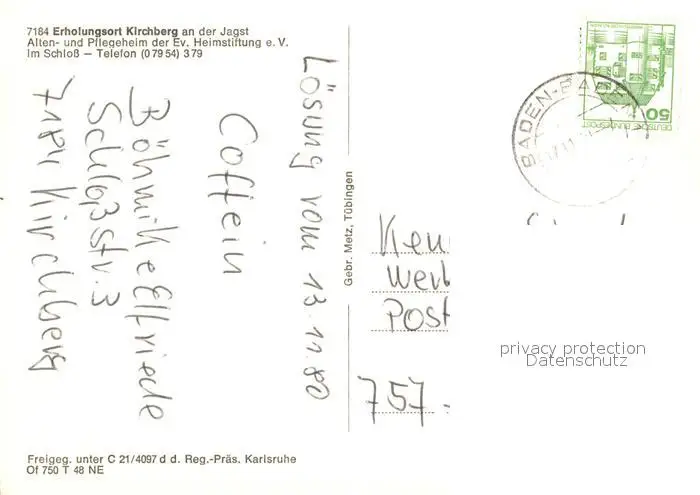 7184 Erholungsort Kirchberg an der Jagst
Alten- und Pflegeheim der Ev. Heimstiftung e. V.
Im Schloß – Telefon (07954) 379
Lösung vom 13.11.80
Coffein
Elfriede
Schloßstr. 3
7184 Kirchberg
Gebr. Metz, Tübingen
DEUTSCHE BUNDESPOST
50
BADEN-BADEN
Ken
Werb
Post
757
privacy protection
Datenschutz
Freigeg. unter C 21/4097 d d. Reg.-Präs. Karlsruhe
Of 750 T 48 NE